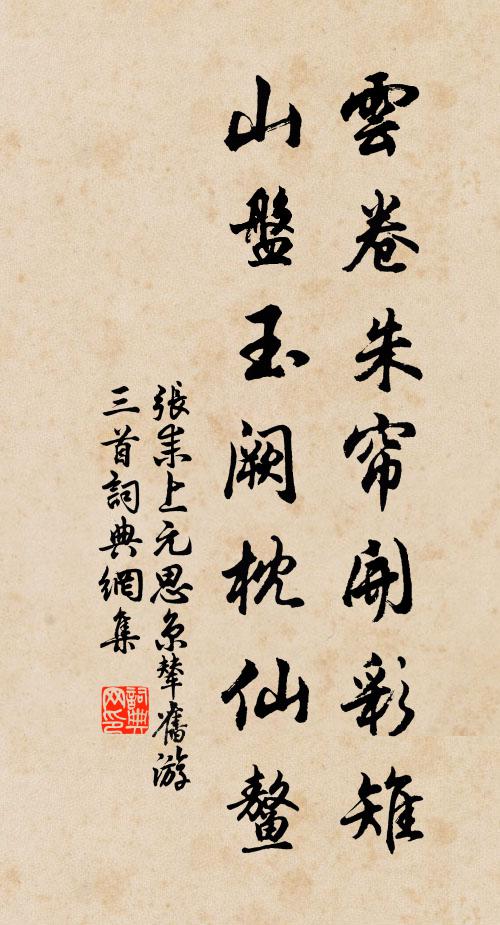 雲卷朱帘開彩雉
山盤玉闕枕仙鰲
張耒上元思京輦舊游
三首詞典網集
詞典網印